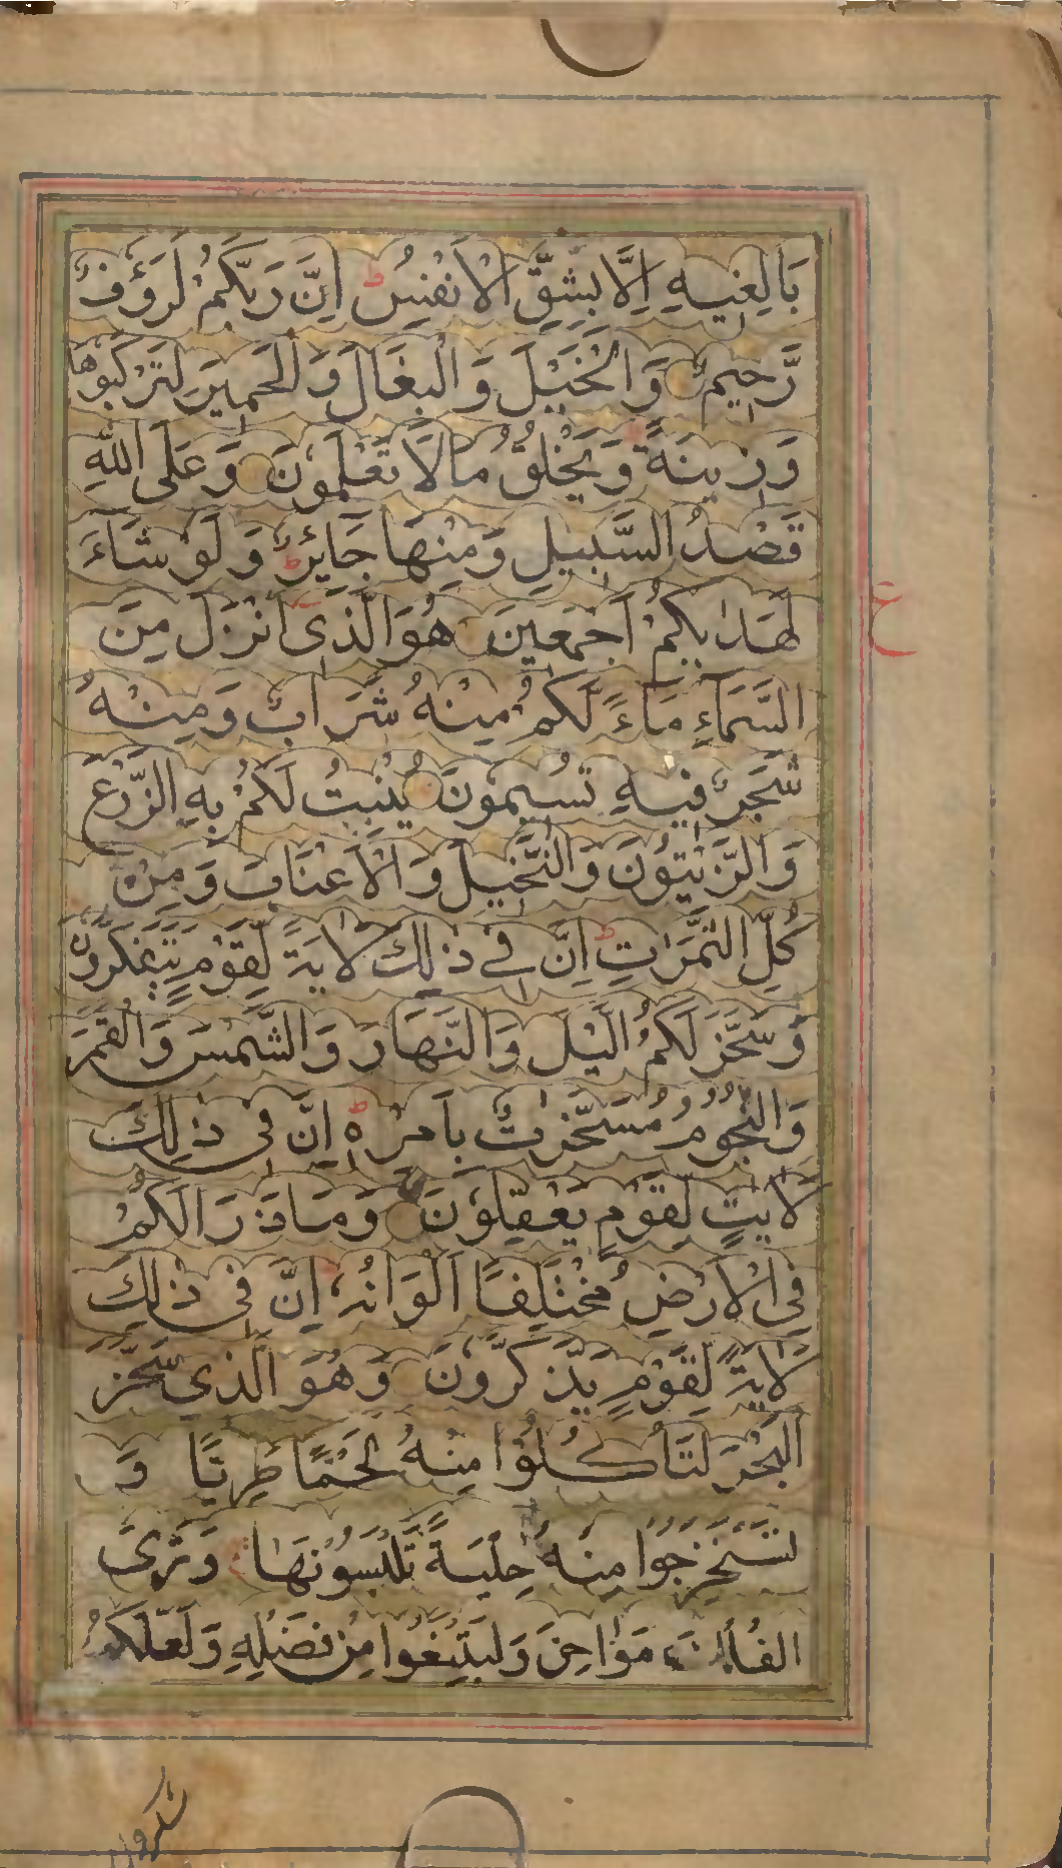 بَالِغِيهِ اِلَّا بِشِقِّ الْاَنْفُسِ ط اِنَّ رَبَّكُمْ لَرَؤُفٌ
رَّحِيمٌ وَالْخَيْلَ وَالْبِغَالَ وَالْحَمِيرَ لِتَرْكَبُوهَا
وَزِينَةً وَيَخْلُقُ مَا لَا تَعْلَمُونَ وَعَلَى اللّٰهِ
قَصْدُ السَّبِيلِ وَمِنْهَا جَائِرٌ ط وَلَوْ شَاءَ
لَهَدٰيكُمْ اَجْمَعِينَ هُوَ الَّذِى اَنْزَلَ مِنَ
السَّمَاءِ مَاءً لَّكُمْ مِنْهُ شَرَابٌ وَمِنْهُ
شَجَرٌ فِيهِ تُسِيمُونَ يُنْبِتُ لَكُمْ بِهِ الزَّرْعَ
وَالزَّيْتُونَ وَالنَّخِيلَ وَالْاَعْنَابَ وَمِنْ
كُلِّ الثَّمَرٰتِ ط اِنَّ فِي ذٰلِكَ لَاٰيَةً لِّقَوْمٍ يَّتَفَكَّرُونَ
وَسَخَّرَ لَكُمُ الَّيْلَ وَالنَّهَارَ وَالشَّمْسَ وَالْقَمَرَ
وَالنُّجُومُ مُسَخَّرٰتٌ بِاَمْرِهٖ ط اِنَّ فِى ذٰلِكَ
لَاٰيٰتٍ لِّقَوْمٍ يَعْقِلُونَ وَمَا ذَرَاَ لَكُمْ
فِي الْاَرْضِ مُخْتَلِفًا اَلْوَانُهٗ اِنَّ فِى ذٰلِكَ
لَاٰيَةً لِّقَوْمٍ يَّذَّكَّرُونَ وَهُوَ الَّذِي سَخَّرَ
الْبَحْرَ لِتَاْكُلُوْا مِنْهُ لَحْمًا طَرِيًّا وَ
تَسْتَخْرِجُوا مِنْهُ حِلْيَةً تَلْبَسُونَهَا وَتَرَى
الْفُلْكَ مَوَاخِرَ وَلِتَبْتَغُوا مِنْ فَضْلِهٖ وَلَعَلَّكُمْ
ع
تشكرون